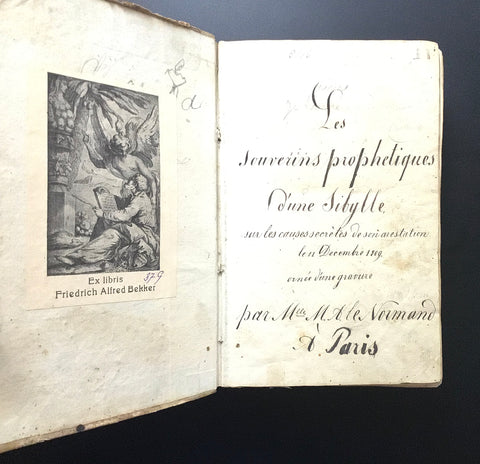 Ex libris
329
Friedrich Alfred Bekker
Les
Souverins prophetiques
d'une Sibylle,
sur les causes secrètes de son arestation
le 11 Decembre 1809.
ornée d'une gravure
par Mlle M. A. le Normand
À Paris